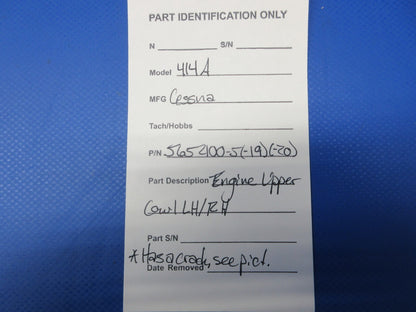 PART IDENTIFICATION ONLY
N S/N
Model 414A
MFG Cessna
Tach/Hobbs
P/N 5652100-5(-19)(-20)
Part Description Engine Upper
Cowl LH/RH
Part S/N
*Has a crack, see pict.
Date Removed